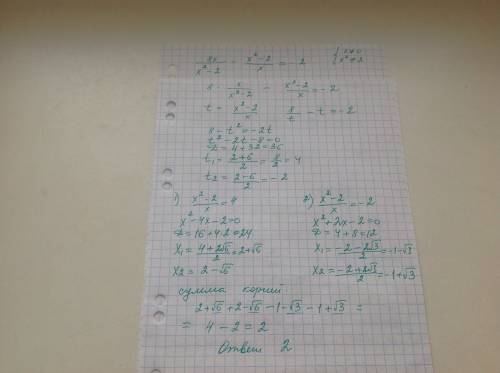 8x/(x²-2) - (x²-2)/x = -2 { x≠0
x²≠2
8 · x/(x²-2) - (x²-2)/x = -2
t = (x²-2)/x 8/t - t = -2
8 - t² = -2t
t² - 2t - 8 = 0
D = 4 + 32 = 36
t₁ = (2+6)/2 = 8/2 = 4
t₂ = (2-6)/2 = -2
1) (x²-2)/x = 4
x² - 4x - 2 = 0
D = 16 + 4·2 = 24
x₁ = (4+2√6)/2 = 2+√6
x₂ = 2-√6
2) (x²-2)/x = -2
x² + 2x - 2 = 0
D = 4 + 8 = 12
x₁ = (-2-2√3)/2 = -1-√3
x₂ = (-2+2√3)/2 = -1+√3
сумма корней
2+√6 + 2-√6 - 1-√3 - 1+√3 =
= 4 - 2 = 2
Ответ 2